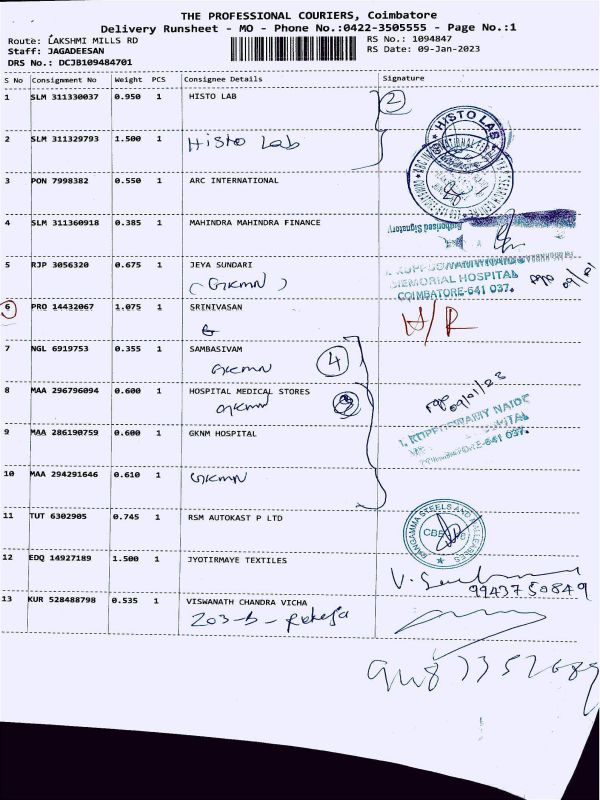 THE PROFESSIONAL COURIERS, Coimbatore
Delivery Runsheet - MO - Phone No.:0422-3505555 - Page No.:1
Route: LAKSHMI MILLS RD
RS No.: 1094847
Staff: JAGADEESAN
RS Date: 09-Jan-2023
DRS No.: DCJB109484701
S No Consignment No Weight PCS Consignee Details Signature
1 SLM 311330037 0.950 1 HISTO LAB 2
2 SLM 311329793 1.500 1 Histo Lab
HISTO LAB
3 PON 7998382 0.550 1 ARC INTERNATIONAL
4 SLM 311360918 0.385 1 MAHINDRA MAHINDRA FINANCE
Authorised Signatory
5 RJP 3056320 0.675 1 JEYA SUNDARI
(GKMN)
MEMORIAL HOSPITAL
COIMBATORE-641 037.
09/01
6 PRO 14432067 1.075 1 SRINIVASAN
7 NGL 6919753 0.355 1 SAMBASIVAM
GKMN
4
8 MAA 296796094 0.600 1 HOSPITAL MEDICAL STORES
GKMN
09/01/23
9 MAA 286190759 0.600 1 GKNM HOSPITAL
10 MAA 294291646 0.610 1 GKMN
11 TUT 6302905 0.745 1 RSM AUTOKAST P LTD
12 EDQ 14927189 1.500 1 JYOTIRMAYE TEXTILES
9943750849
13 KUR 528488798 0.535 1 VISWANATH CHANDRA VICHA
203-B-